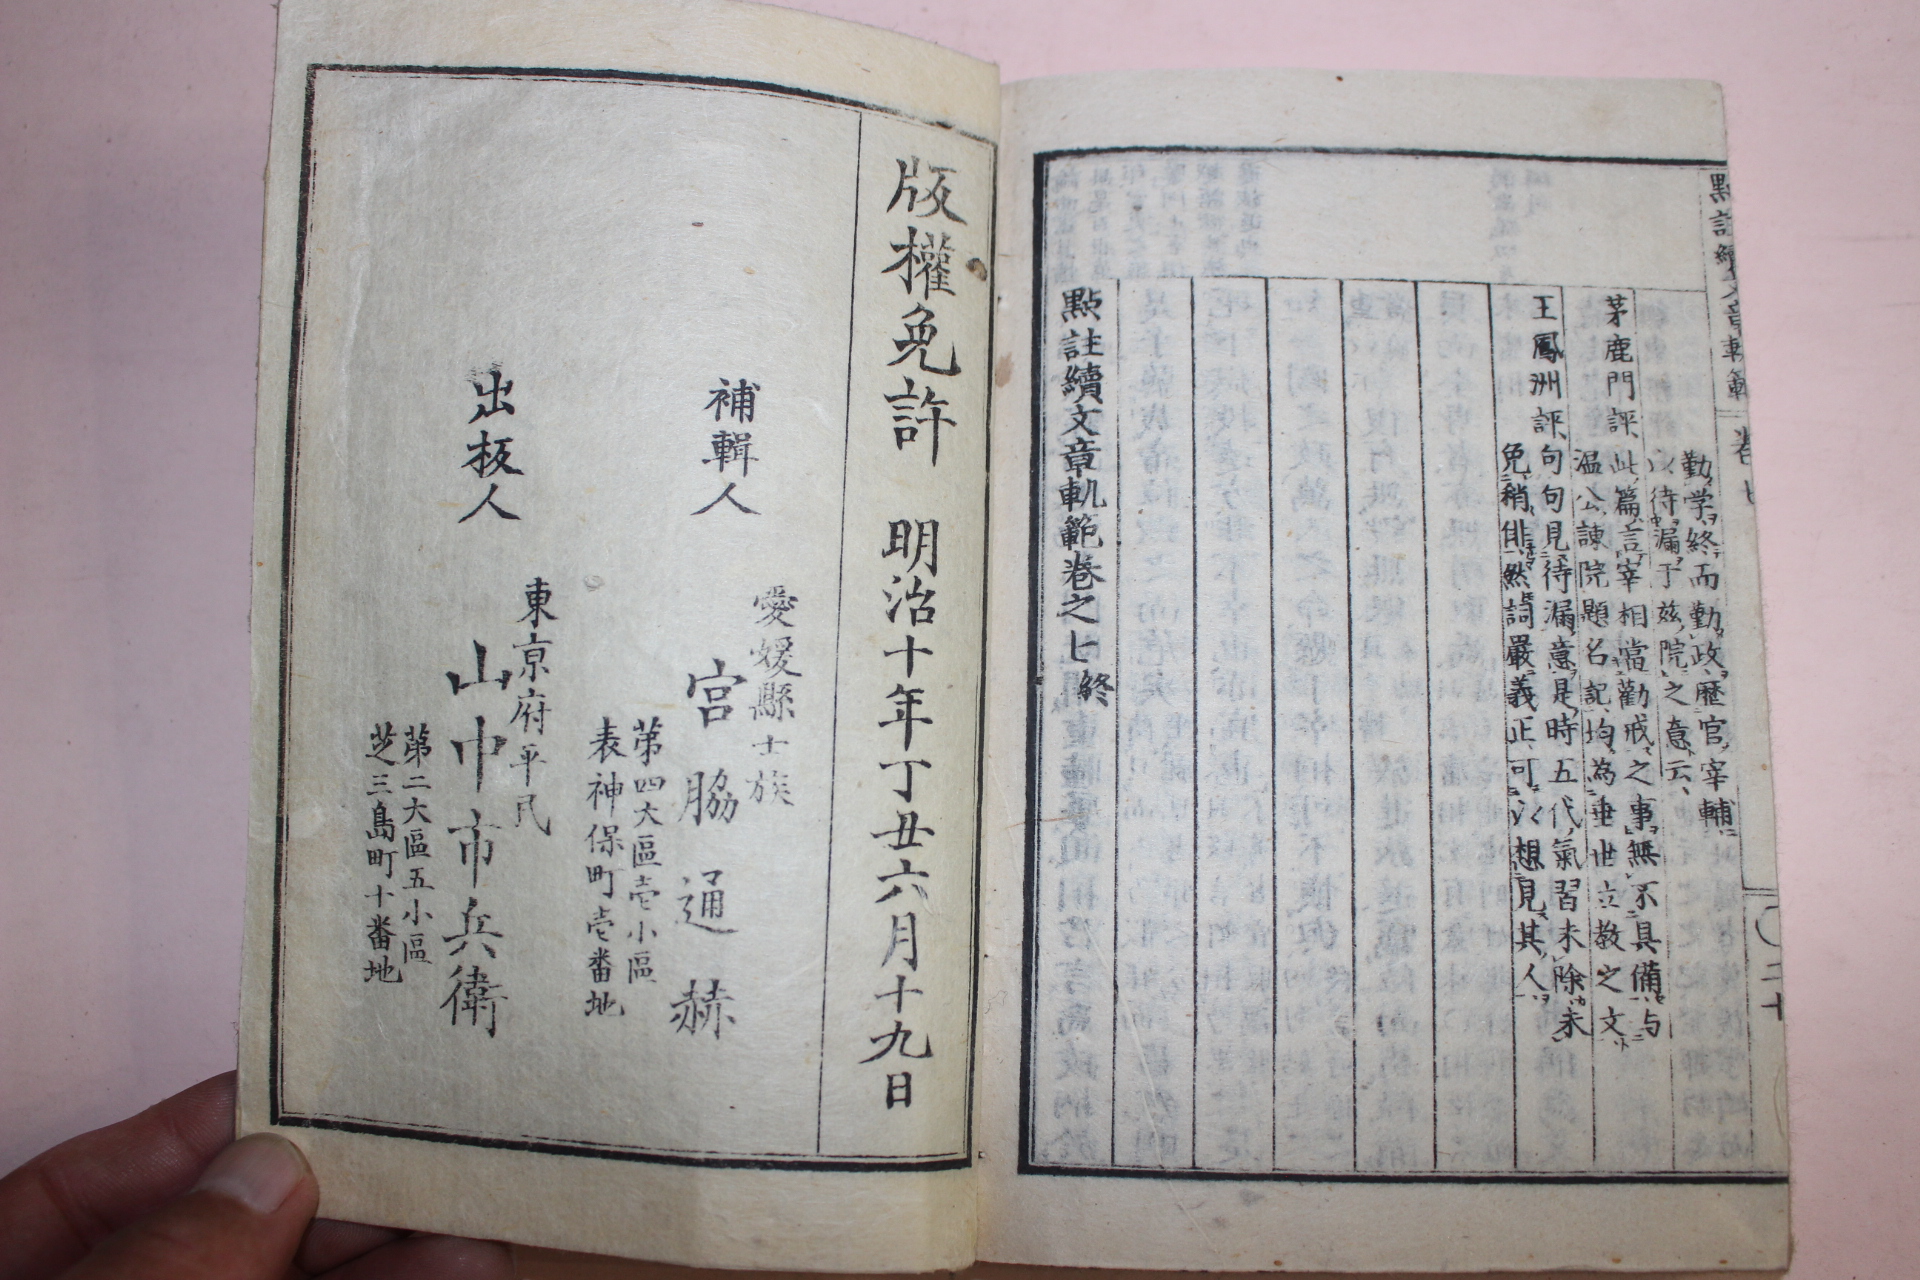 點註續文章軌範
卷七
二十
勤学終而勤政歷官宰輔
以待漏于茲院之意云
茅鹿門評此篇言宰相當勸戒之事無不具備与
温公諫院題名記均為垂世立教之文
王鳳洲評句句見待漏意是時五代氣習未除未
免稍俳然詞嚴義正可以想見其人
點註續文章軌範卷之七終
版權免許 明治十年丁丑六月十九日
補輯人
愛媛縣士族
宮脇通赫
第四大區壱小區
表神保町壱番地
出板人
東京府平民
山中市兵衛
第二大區五小區
芝三島町十番地